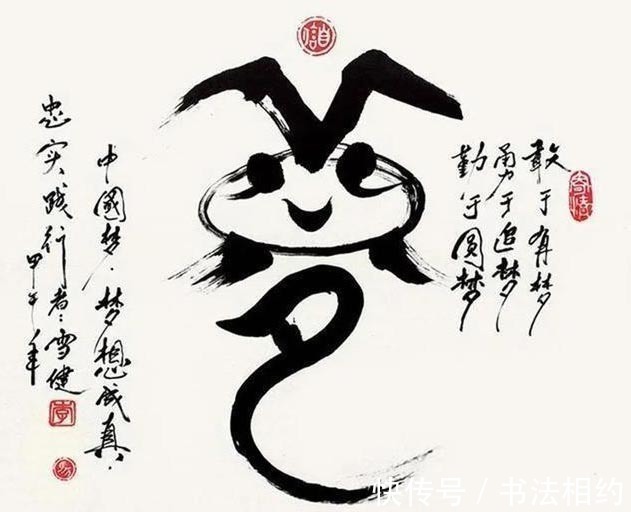 敢于有梦
勇于追梦
勤于圆梦
夢
中國梦·梦想成真·
忠实践行者:雪健
甲午年
快传号 / 书法相约